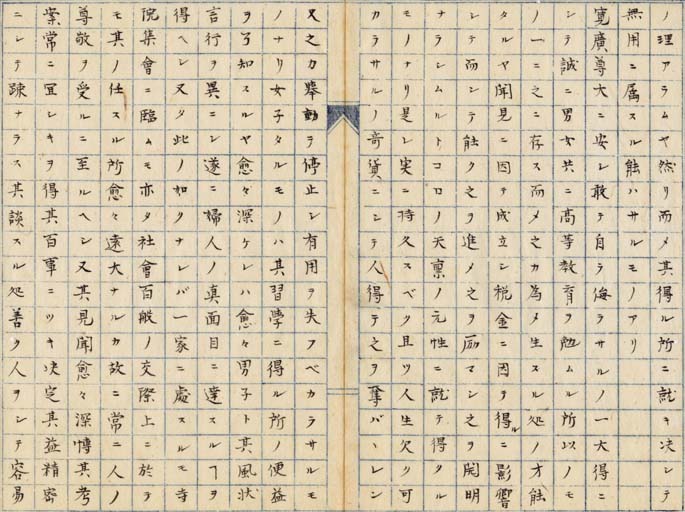 ノ理アラムヤ然リ而メ其得ル所ニ就キ决シテ
無用ニ属スル能ハサルモノアリ
寛廣尊大ニ安レ敢テ自ラ侮ラサルノ一大得ニ
シテ誠ニ男女共ニ髙等教育ヲ勉ムル所以ノモ
ノ一ニ之ニ存ス而メ之カ為メ生スル処ノ才能
タルヤ聞見ニ因テ成立シ税金ニ因ヲ得ルニ影響
シテ而シテ能ク之ヲ進メ之ヲ励マシ之ヲ開明
ナラシムルトコロノ天禀ノ元性ニ就テ得タル
モノナリ是レ実ニ持久スベク且ツ人生欠ク可
カラサルノ奇貨ニシテ人得テ之ヲ奪バヽレン
又之カ舉動ヲ停止シ有用ヲ失フベカラサルモ
ノナリ女子タルモノハ其習學ニ得ル所ノ便益
ヲ了知スルヤ愈々深ケレハ愈々男子ト其風状
言行ヲ異ニシ遂ニ婦人ノ真面目ニ達スルヿヲ
得ヘシ又タ此ノ如クナレバ一家ニ處スルモ寺
院集會ニ臨ムモ亦タ社會百般ノ交際上ニ於テ
モ其ノ仕スル所愈々遠大ナルカ故ニ常ニ人ノ
尊敬ヲ受ルニ至ルヘシ又其見聞愈々深博其考
案常ニ冝シキヲ得其百事ニツキ决定其益精密
ニシテ疎ナラス其談スル処善ク人ヲシテ容易